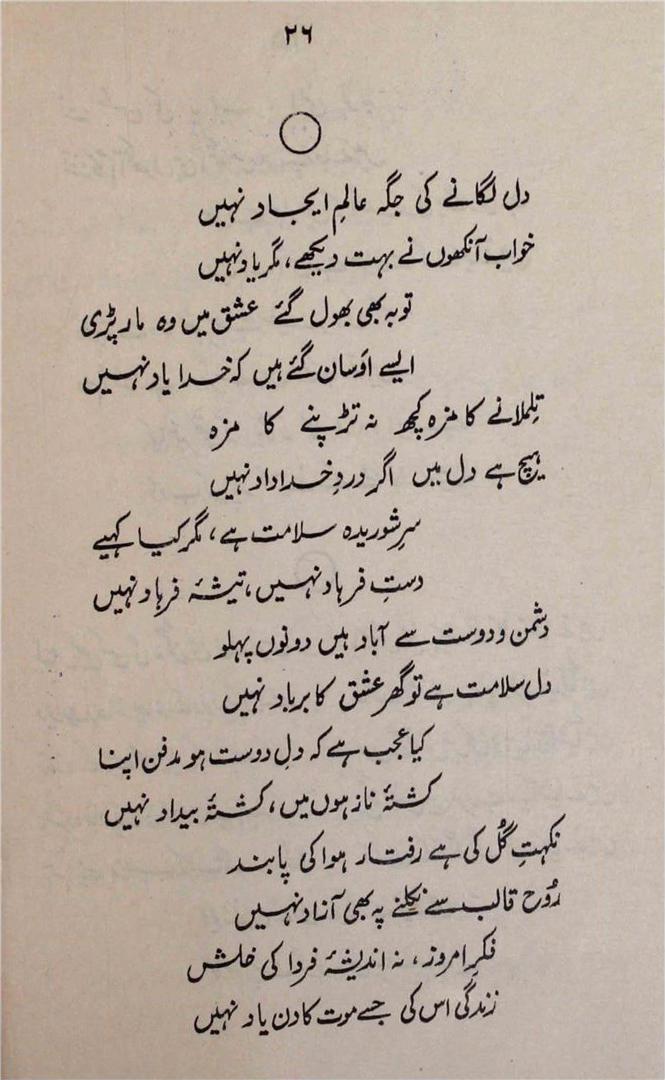 ۲۶
دل لگانے کی جگہ عالمِ ایجاد نہیں
خواب آنکھوں نے بہت دیکھے، مگر یاد نہیں
توبہ بھی بھول گئے عشق میں وہ مار پڑی
ایسے اَوسان گئے ہیں کہ خدا یاد نہیں
تِلملانے کا مزہ کچھ نہ تڑپنے کا مزہ
ہیچ ہے دل میں اگر دردِ خداداد نہیں
سرِ شوریدہ سلامت ہے، مگر کیا کہیے
دستِ فرہاد نہیں، تیشۂ فرہاد نہیں
دشمن و دوست سے آباد ہیں دونوں پہلو
دل سلامت ہے تو گھر عشق کا برباد نہیں
کیا عجب ہے کہ دلِ دوست ہو مدفن اپنا
کشتۂ ناز ہوں میں، کشتۂ بیداد نہیں
نکہتِ گُل کی ہے رفتار ہوا کی پابند
رُوح قالب سے نکلنے پہ بھی آزاد نہیں
فکرِ امروز، نہ اندیشۂ فردا کی خلش
زندگی اس کی جسے موت کا دن یاد نہیں